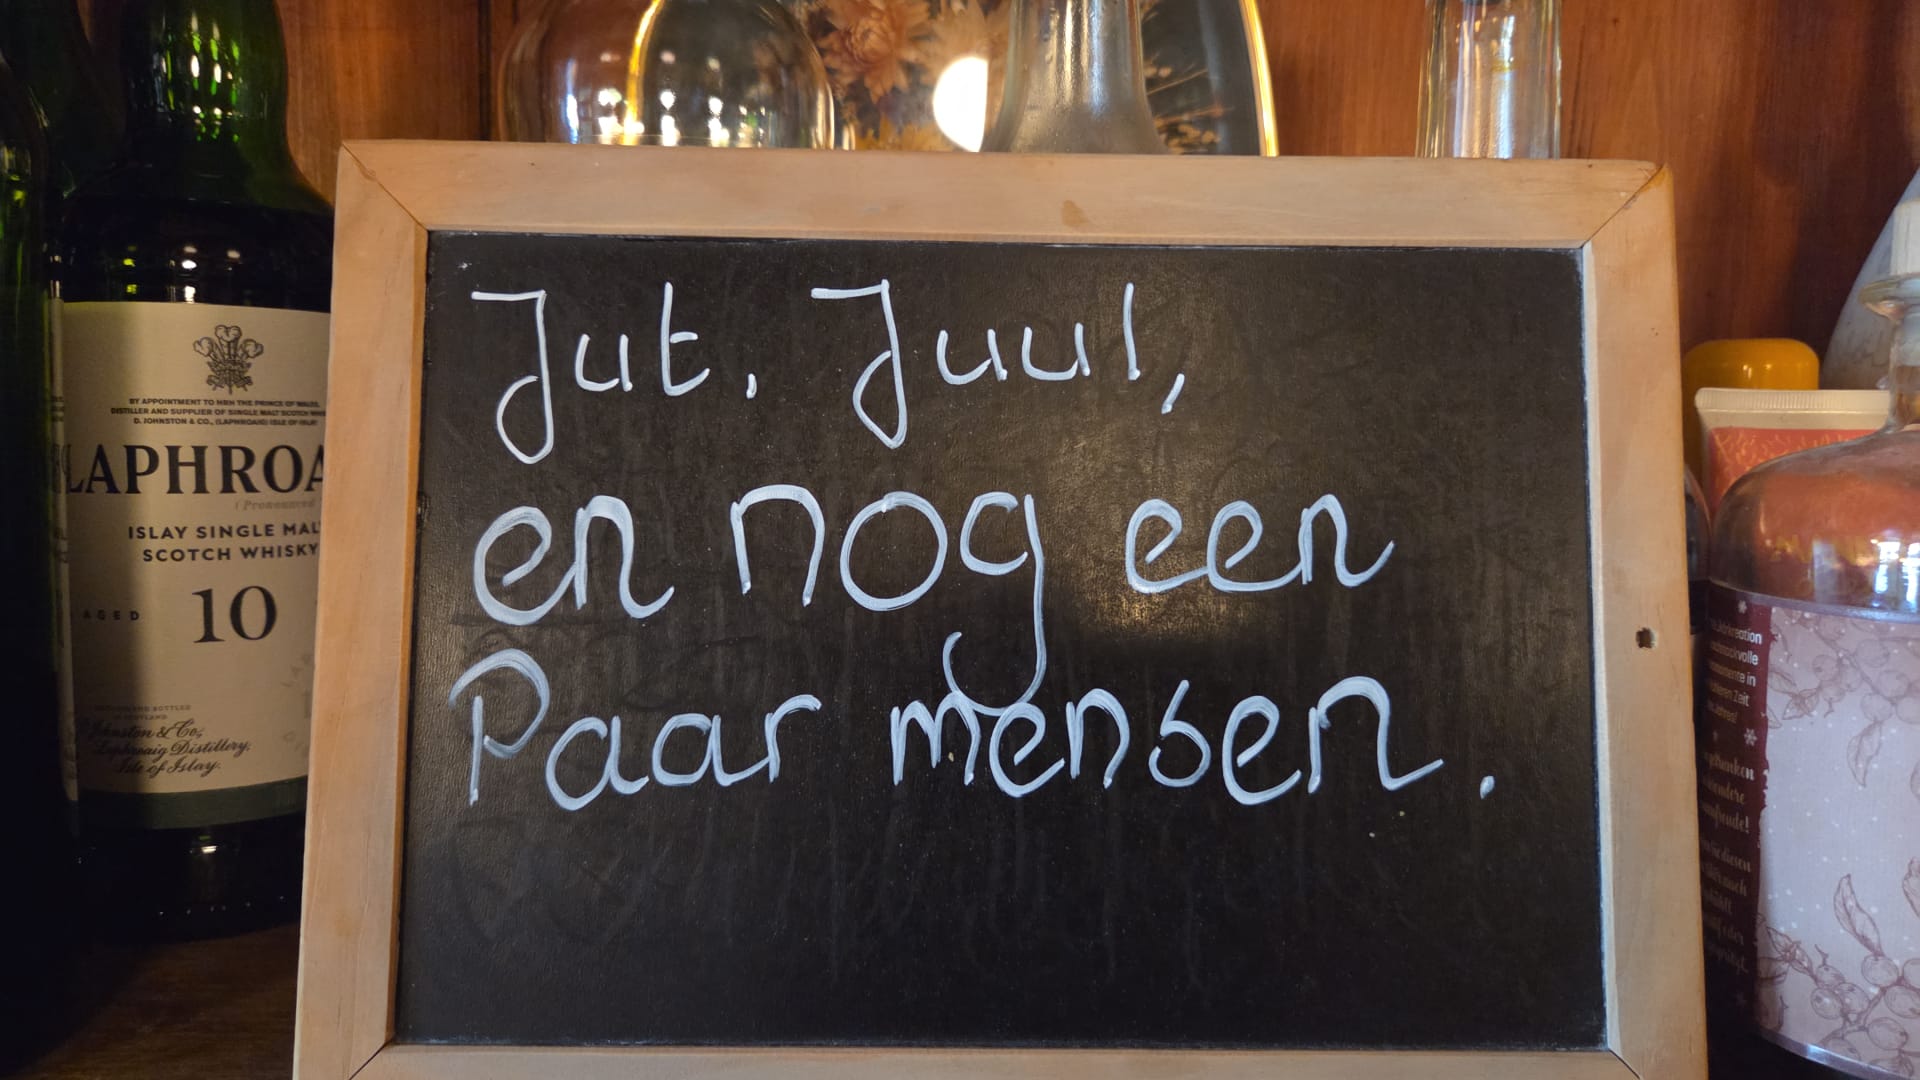 Jut. Juul,
en nog een
Paar mensen.
BY APPOINTMENT TO HRH THE PRINCE OF WALES,
DISTILLER AND SUPPLIER OF SINGLE MALT SCOTCH
D. JOHNSTON & CO., (LAPHROAIG) ISLE OF ISLAY
LAPHROA
(Pronounced
ISLAY SINGLE MAL
SCOTCH WHISKY
AGED 10
Johnston & Co.,
Laphroaig Distillery,
Isle of Islay.